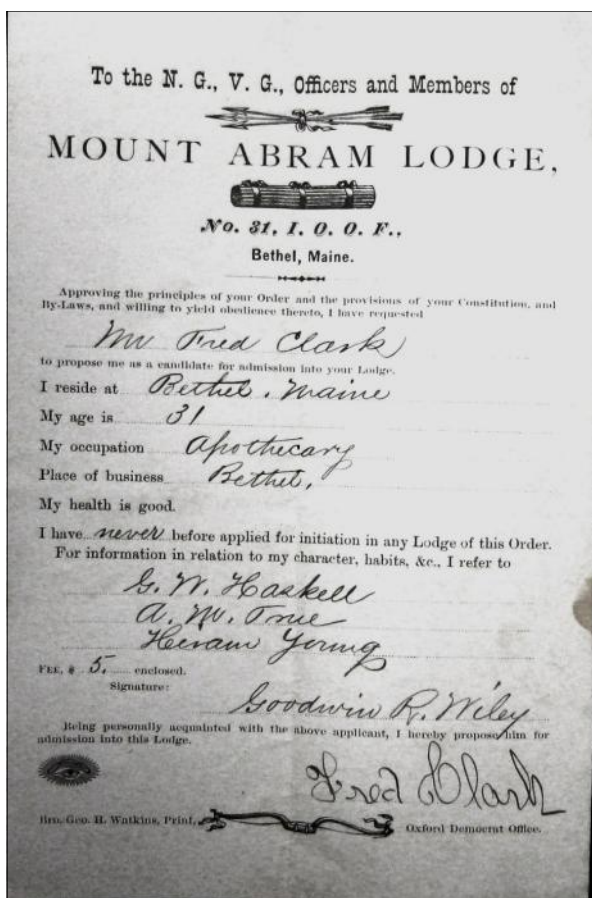 To the N. G., V. G., Officers and Members of
MOUNT ABRAM LODGE,
No. 31, I. O. O. F.,
Bethel, Maine.
Approving the principles of your Order and the provisions of your Constitution, and
By-Laws, and willing to yield obedience thereto, I have requested
Mr Fred Clark
to propose me as a candidate for admission into your Lodge.
I reside at Bethel, Maine
My age is 31
My occupation Apothecary
Place of business Bethel,
My health is good.
I have never before applied for initiation in any Lodge of this Order.
For information in relation to my character, habits, &c., I refer to
G. W. Haskell
A. M. True
Hiram Young
FEE, $ 5. enclosed.
Signature:
Goodwin R. Wiley
Being personally acquainted with the above applicant, I hereby propose him for
admission into this Lodge.
Fred Clark
Bro. Geo. H. Watkins, Print, Oxford Democrat Office.